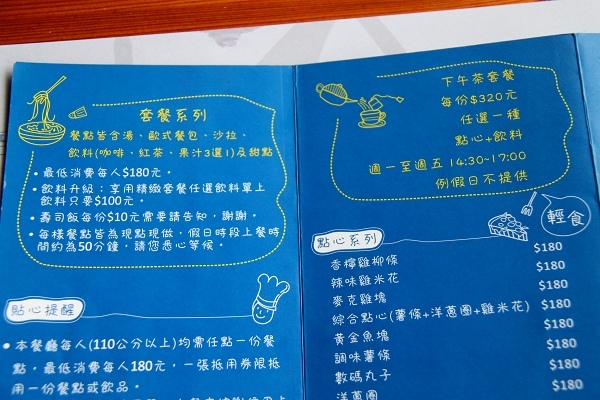 套餐系列
餐點皆含湯、歐式餐包、沙拉、
飲料(咖啡、紅茶、果汁3選1)及甜點
• 最低消費每人$180元。
• 飲料升級：享用精緻套餐任選飲料單上
飲料只要$100元。
• 壽司飯每份$10元需要請告知，謝謝。
• 每樣餐點皆為現點現做，假日時段上餐時
間約為50分鐘，請您悉心等候。
貼心提醒
• 本餐廳每人(110公分以上)均需任點一份餐
點，最低消費每人180元，一張抵用券限抵
用一份餐點或飲品。
下午茶套餐
每份$320元
任選一種
點心+飲料
週一至週五 14:30~17:00
例假日不提供
輕食
點心系列
香檸雞柳條 $180
辣味雞米花 $180
麥克雞塊 $180
綜合點心(薯條+洋蔥圈+雞米花) $180
黃金魚塊 $180
調味薯條 $180
數碼丸子 $180
洋蔥圈 $180